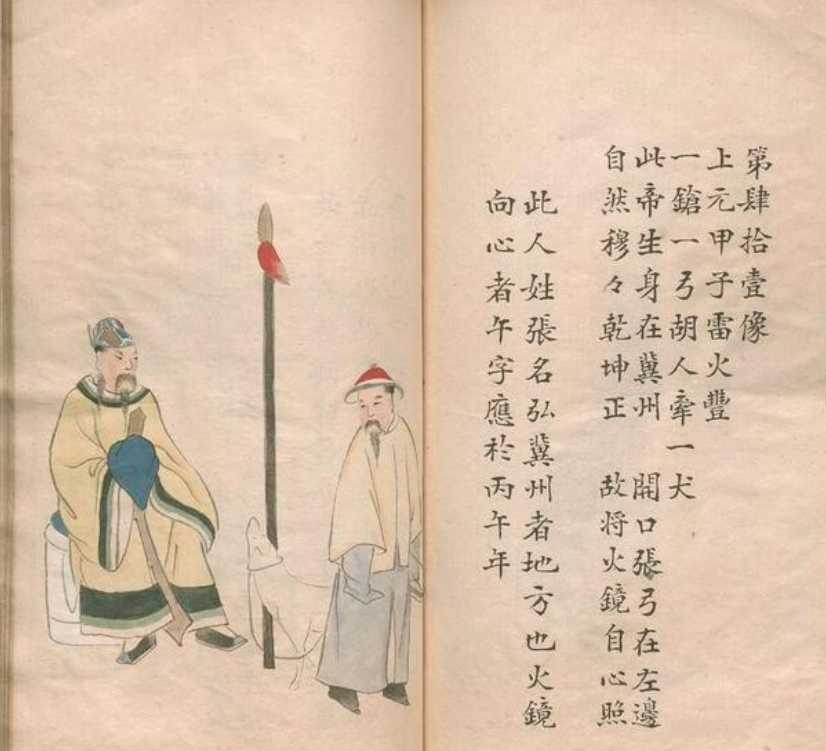 第肆拾壹像
上元甲子雷火豐
一鎗一弓胡人牽一犬
此帝生身在冀州　開口張弓在左邊
自然穆々乾坤正　故将火鏡自心照
此人姓張名弘冀州者地方也火鏡
向心者午字應於丙午年